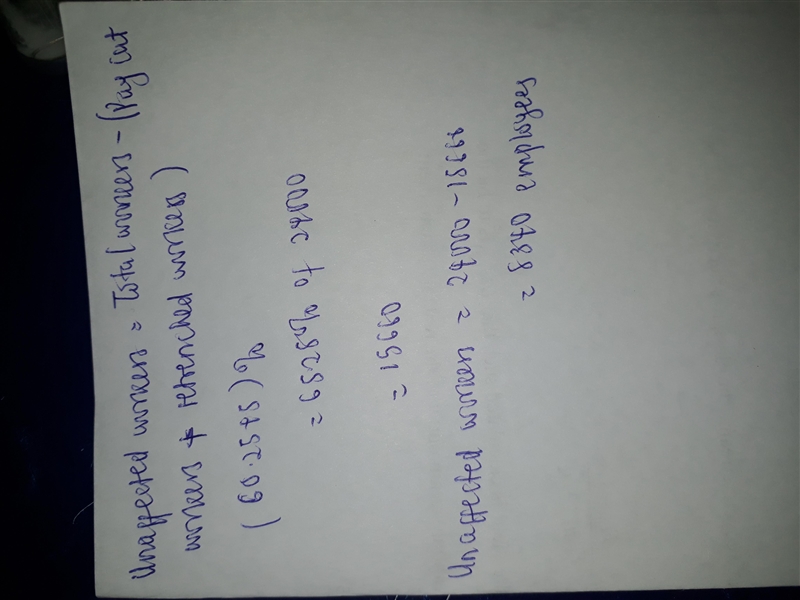 Unaffected workers = Total workers - (Pay cut
workers + retrenched workers)
(60.25+5)%
= 65.25% of 24000
= 15660
Unaffected workers = 24000 - 15660
= 8340 employees